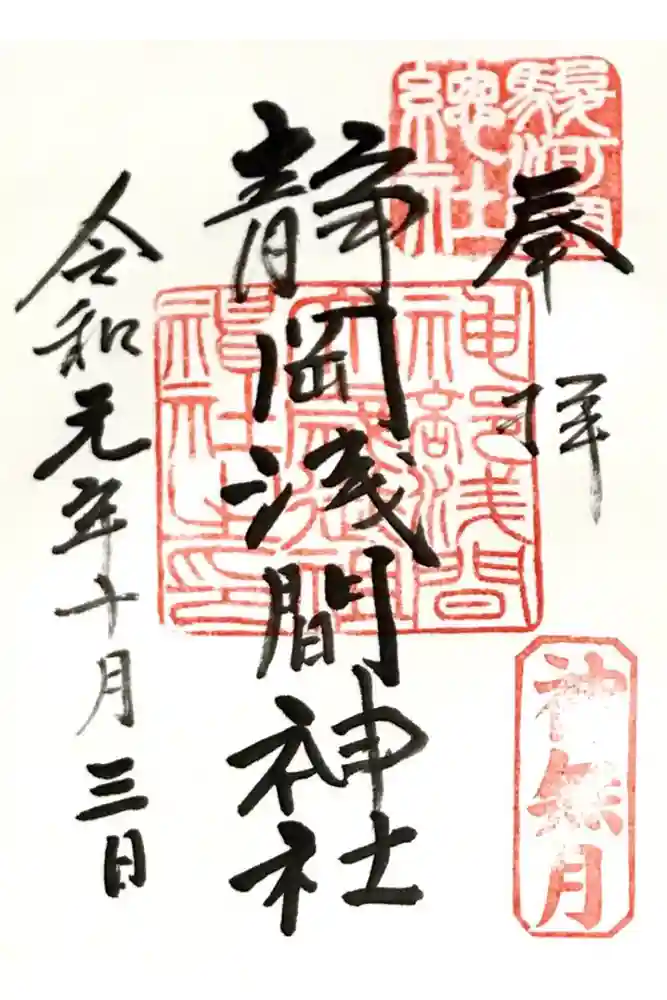 駿河國
總社
奉拝
神部浅間
大歳御祖
神社之印
静岡浅間神社
令和元年十月三日
神無月